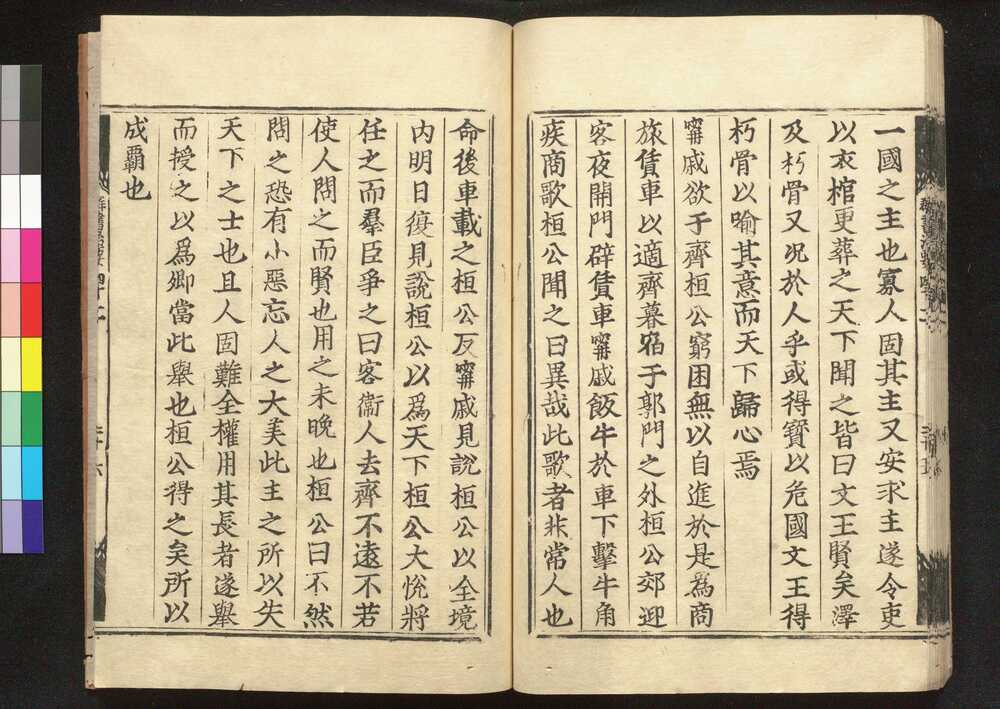 一國之主也寡人固其主又安求主遂令吏
以衣棺更葬之天下聞之皆曰文王賢矣澤
及朽骨又況於人乎或得寶以危國文王得
朽骨以喻其意而天下歸心焉
甯戚欲于齊桓公窮困無以自進於是爲商
旅賃車以適齊暮宿于郭門之外桓公郊迎
客夜開門辟賃車甯戚飯牛於車下擊牛角
疾商歌桓公聞之曰異哉此歌者非常人也
命後車載之桓公反甯戚見說桓公以全境
内明日復見說桓公以爲天下桓公大悅將
任之而羣臣爭之曰客衞人去齊不遠不若
使人問之而賢也用之未晚也桓公曰不然
問之恐有小惡忘人之大美此主之所以失
天下之士也且人固難全權用其長者遂舉
而授之以爲卿當此舉也桓公得之矣所以
成霸也
群書治要 四十二